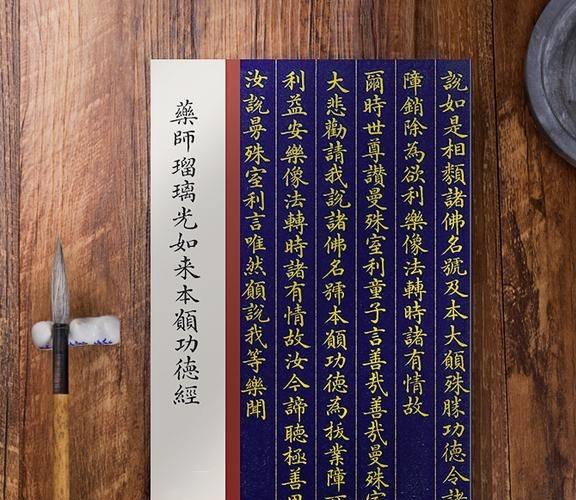 說如是相類諸佛名號及本大願殊勝功德令諸
障銷除為欲利樂像法轉時諸有情故
爾時世尊讚曼殊室利童子言善哉善哉曼殊室
大悲勸請我說諸佛名號本願功德為拔業障
利益安樂像法轉時諸有情故汝今諦聽極善思
汝說曼殊室利言唯然願說我等樂聞
藥師瑠璃光如来本願功德經